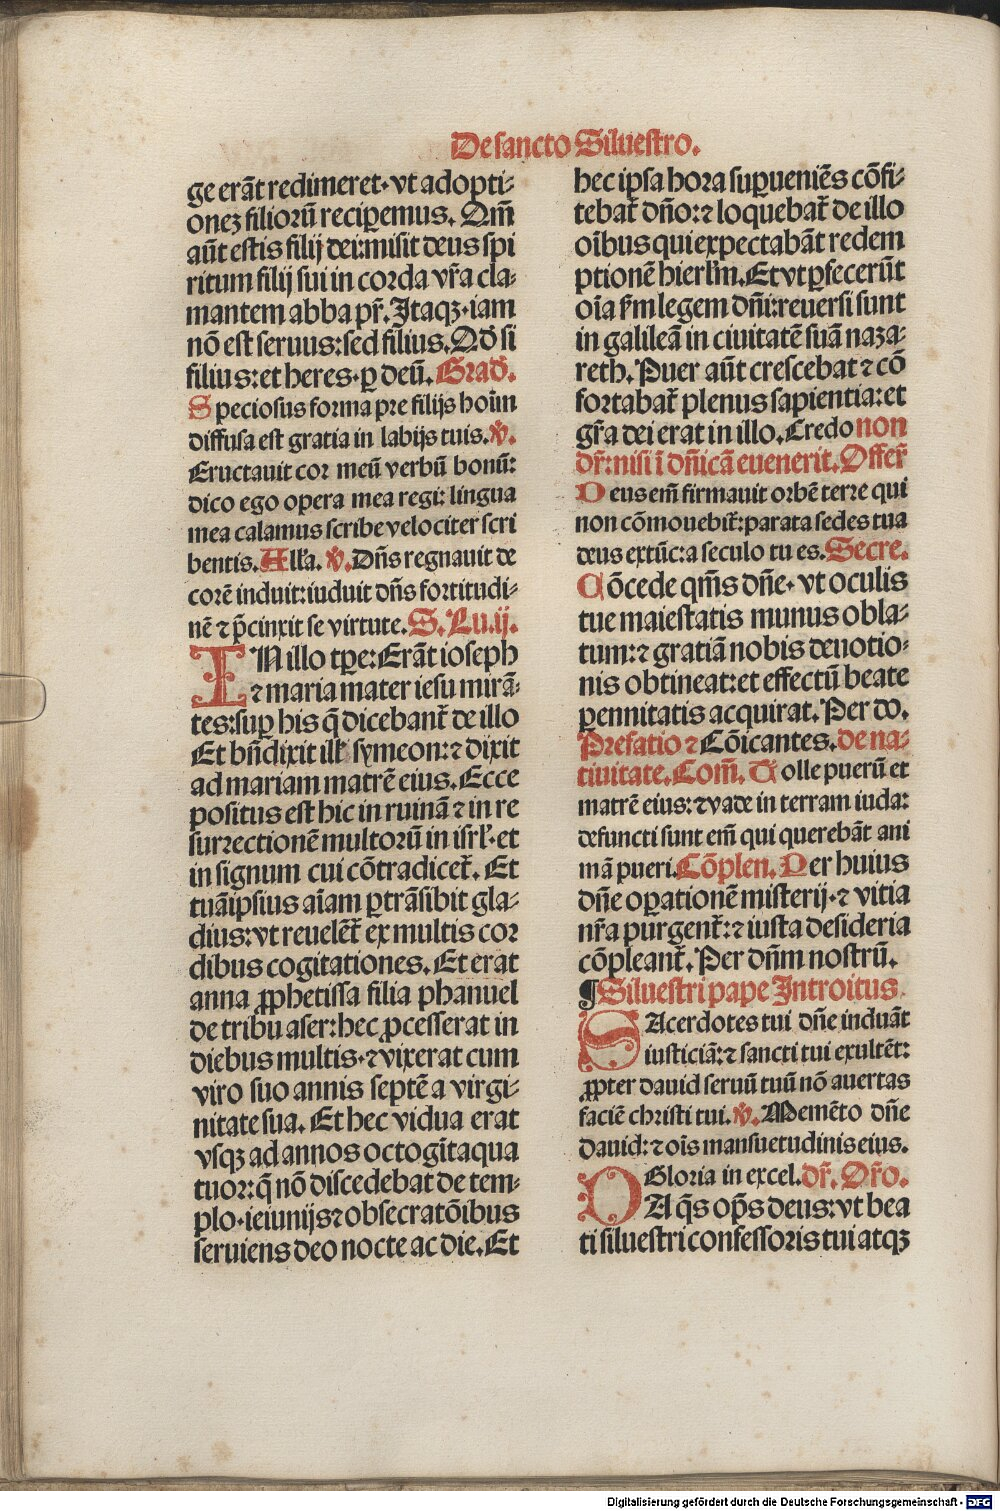 De sancto Siluestro.
ge erāt redimeret· vt adopti⸗
onez filiorū recipemus. Qm̄
aūt estis filij dei: misit deus spi
ritum filij sui in corda vr̄a cla⸗
mantem abba pr̄. Itaqꝫ· iam
nō est seruus: sed filius. Qd̓ si
filius: et heres· ꝑ deū. Grad̓.
Speciosus forma pre filijs hoīm
diffusa est gratia in labijs tuis. ℣.
Eructauit cor meū verbū bonū:
dico ego opera mea regi: lingua
mea calamus scribe velociter scri
bentis. Alla. ℣. Dn̄s regnauit de
corē induit: iuduit dn̄s fortitudi⸗
nē ⁊ p̄cinxit se virtute. S. Lu. ij.
IN illo tꝑe: Erāt ioseph
⁊ maria mater iesu mirā⸗
tes: suꝑ his q̄ dicebant̄ de illo
Et bn̄dixit ill̓ symeon: ⁊ dixit
ad mariam matrē eius. Ecce
positus est hic in ruinā ⁊ in re
surrectionē multorū in isrl̓· et
in signum cui cōtradicet̄. Et
tuā ipsius aīam ꝑtrāsibit gla⸗
dius: vt reuelēt̄ ex multis cor
dibus cogitationes. Et erat
anna ꝓphetissa filia phanuel
de tribu aser: hec ꝓcesserat in
diebus multis· ⁊ vixerat cum
viro suo annis septē a virgi⸗
nitate sua. Et hec vidua erat
vsqꝫ ad annos octogīta qua
tuor: q̄ nō discedebat de tem⸗
plo· ieiunijs ⁊ obsecratōibus
seruiens deo nocte ac die. Et
hec ipsa hora suꝑueniēs cōfi⸗
tebat̄ dn̄o: ⁊ loquebat̄ de illo
oībus qui expectabāt redem
ptionē hierlm̄. Et vt ꝑfecerūt
oīa s̓m legem dn̄i: reuersi sunt
in galileā in ciuitatē suā naza⸗
reth. Puer aūt crescebat ⁊ cō
fortabat̄ plenus sapientia: et
gr̄a dei erat in illo. Credo non
dr̄: nisi ī dn̄icā euenerit. Offer̄
Deus em̄ firmauit orbē terre qui
non cōmouebit̄: parata sedes tua
deus extūc: a seculo tu es. Secre.
Cōcede qm̄s dn̄e· vt oculis
tue maiestatis munus obla⸗
tum: ⁊ gratiā nobis deuotio⸗
nis obtineat: et effectū beate
ꝑennitatis acquirat. Per do.
Prefatio ⁊ Cōicantes. de na⸗
tiuitate. Com̄. Tolle puerū et
matrē eius: ⁊ vade in terram iuda:
defuncti sunt em̄ qui querebāt ani
mā pueri. Cōplen. Per huius
dn̄e oꝑationē misterij· ⁊ vitia
nr̄a purgent̄: ⁊ iusta desideria
cōpleant̄. Per dn̄m nostrū.
¶ Siluestri pape Introitus.
SAcerdotes tui dn̄e induāt
iusticiā: ⁊ sancti tui exultēt:
ꝓpter dauid seruū tuū nō auertas
faciē christi tui. ℣. Memēto dn̄e
dauid: ⁊ oīs mansuetudinis eius.
Gloria in excel. dr̄. Or̄o.
DA q̄s op̄s deus: vt bea
ti siluestri confessoris tui atqꝫ
Digitalisierung gefördert durch die Deutsche Forschungsgemeinschaft - DFG